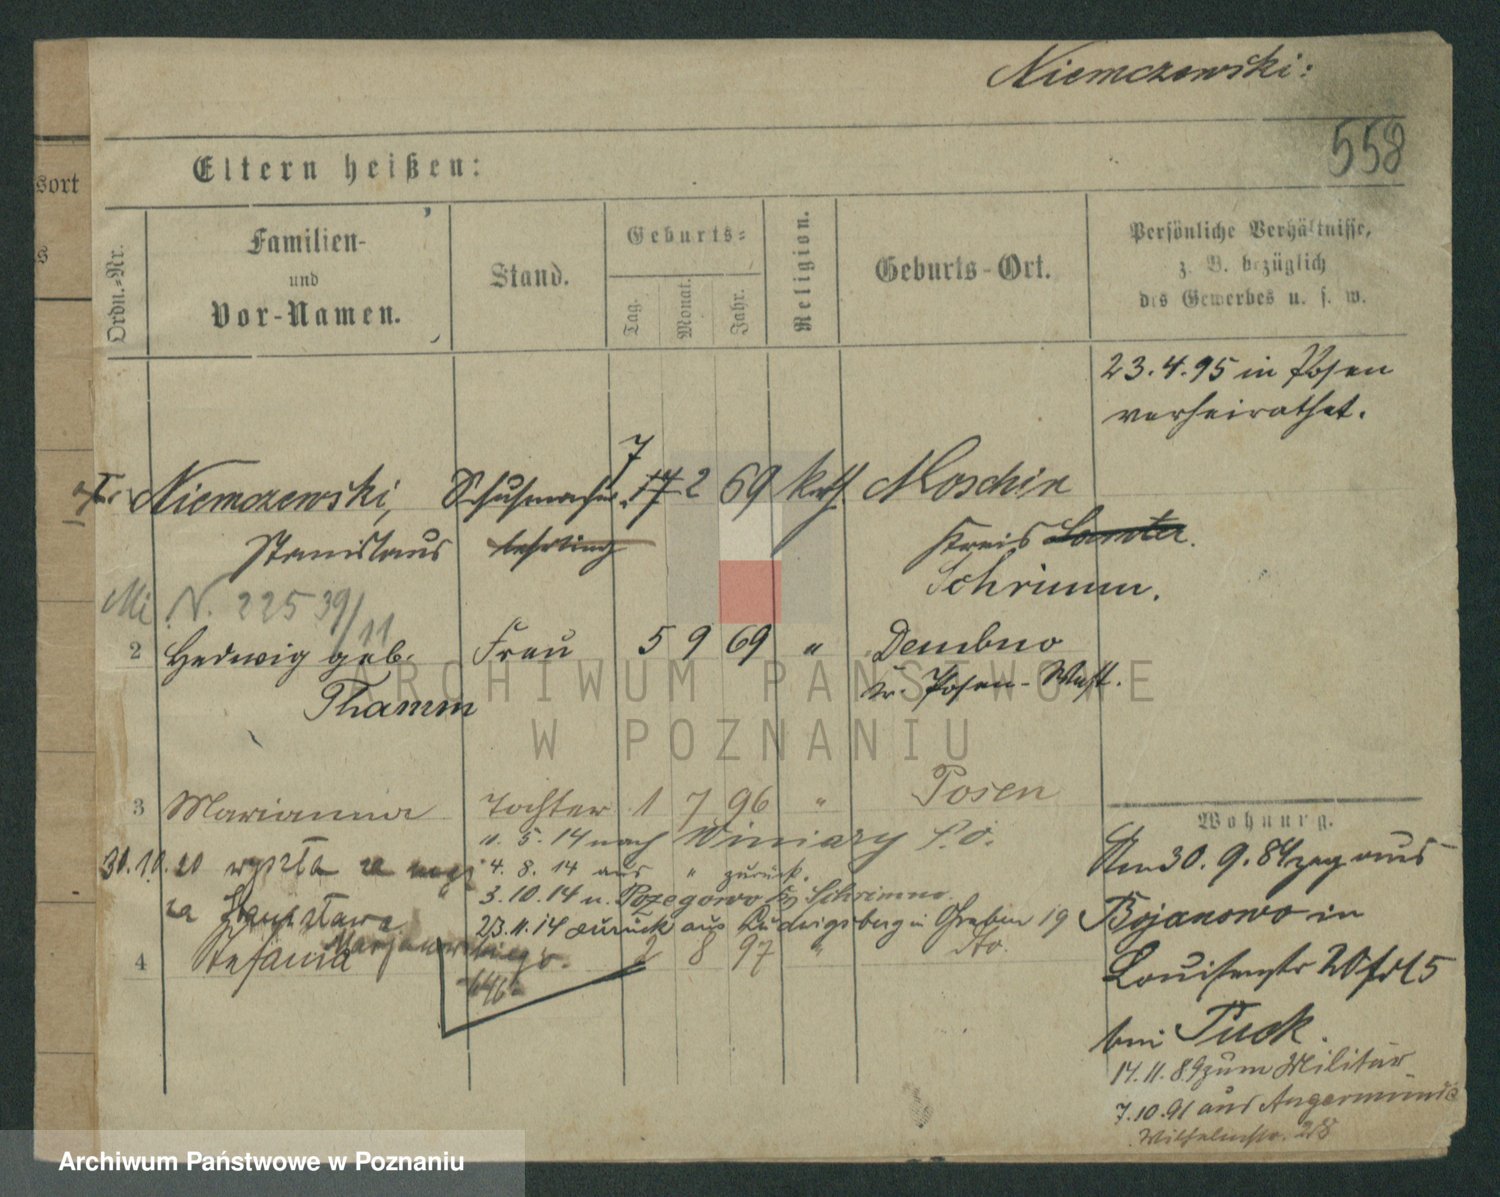 Niemczewski:
558
Eltern heißen:
Ordn.-Nr.
Familien-
und
Vor-Namen.
Stand.
Geburts-
Tag.
Monat.
Jahr.
Religion.
Geburts-Ort.
Persönliche Verhältnisse,
z. B. bezüglich
des Gewerbes u. s. w.
sort
s
23.4.95 in Posen
verheirathet.
7
Niemczewski, Schuhmacher 17 2 69 kath. Moschin
Stanislaus lehrling Kreis Samter.
Schrimm.
Mi N. 22539/11
2 Hedwig geb. Frau 5 9 69 " Dembno
Thamm Kr. Posen-West.
3 Marianna Tochter 1 7 96 " Posen
5.14 nach Winiary P.O.
30.10.20 wyszła za mąż 4.8.14 aus " zurück.
3.10.14 n. Schrimm
za Stanisława 23.11.14 zurück aus Ludwigsberg Graben 19
Marjanowskiego
4 Stefania 2 8 97 " dto
Wohnung.
Am 30.9.84 zog aus
Bojanowo in
Louisenstr 20
bei Tuck.
14.11.89 zum Militär
7.10.91 aus Angermünde
Wilhelmstr. 28
ARCHIWUM PAŃSTWOWE
W POZNANIU
Archiwum Państwowe w Poznaniu